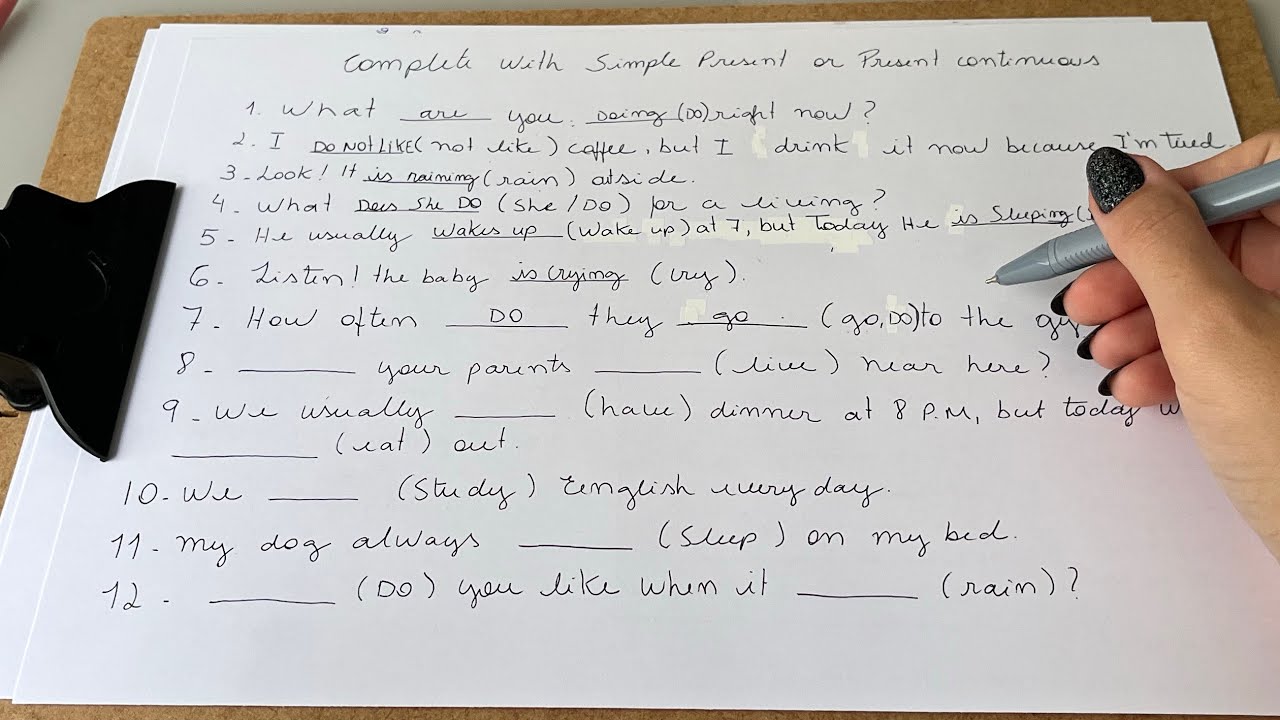 Complete with Simple Present or Present continuous
1. What are you doing (DO) right now?
2. I DO NOT LIKE (not like) coffee, but I drink it now because I'm tired.
3. Look! It is raining (rain) outside.
4. What Does She DO (She/DO) for a living?
5. He usually wakes up (wake up) at 7, but Today He is Sleeping (
6. Listen! the baby is crying (cry).
7. How often DO they go (go, DO) to the
8. ____ your parents ____ (live) near here?
9. We usually ____ (have) dinner at 8 P.M, but today
____ (eat) out.
10. We ____ (Study) English every day.
11. my dog always ____ (Sleep) on my bed.
12. ____ (DO) you like when it ____ (rain)?